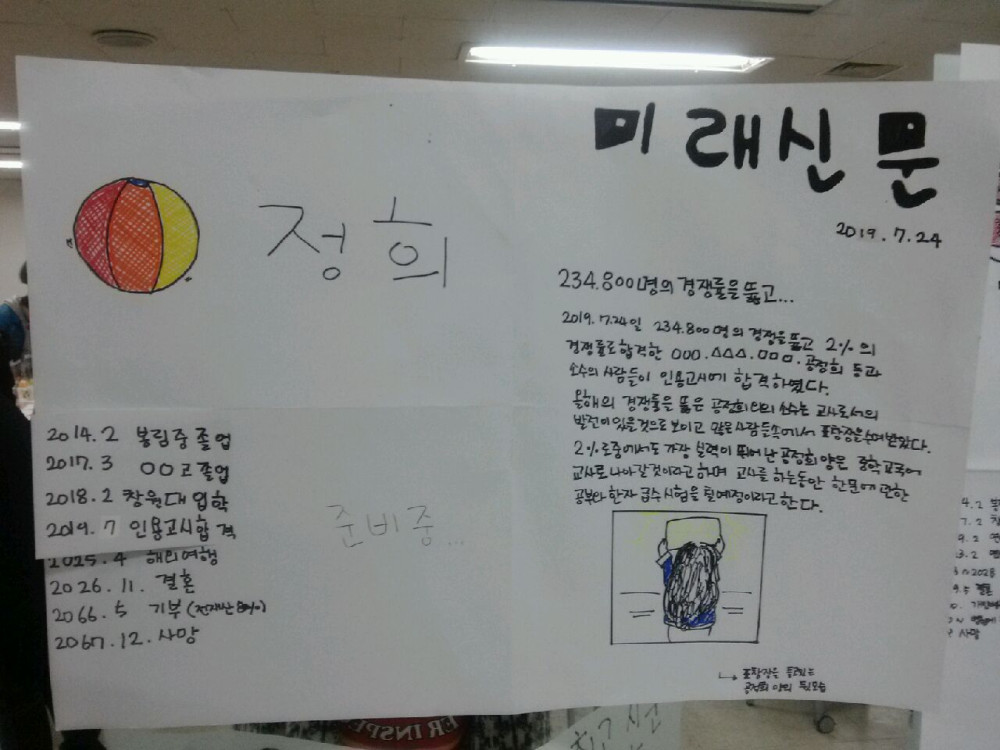 정희
2014.2 봉림중 졸업
2017.3 ○○고 졸업
2018.2 창원대 입학
2019.7 인용고시합격
2025.4 해외여행
2026.11. 결혼
2066.5 기부 (전재산 80%)
2067.12. 사망
준비중...
미래신문
2019.7.24
234.800명의 경쟁률을 뚫고...
2019.7.24일 234.800명의 경쟁을 뚫고 2%의
경쟁률로 합격한 ○○○.△△△.□□□.공정희 등과
소수의 사람들이 인용고시에 합격하였다.
올해의 경쟁률을 뚫은 공정희 외의 소수는 교사로서의
발전이 있을것으로 보이고 많은 사람들속에서 표창장을 수여받았다.
2%로중에서도 가장 실력이 뛰어난 공정희 양은 중학교국어
교사로 나아갈것이라고 하며 교사를 하는동안 한문에 관한
공부와 한자 급수시험을 칠 예정이라고 한다.
표창장을 들고있는
공정희 양의 뒷모습
ER INSPE
사망